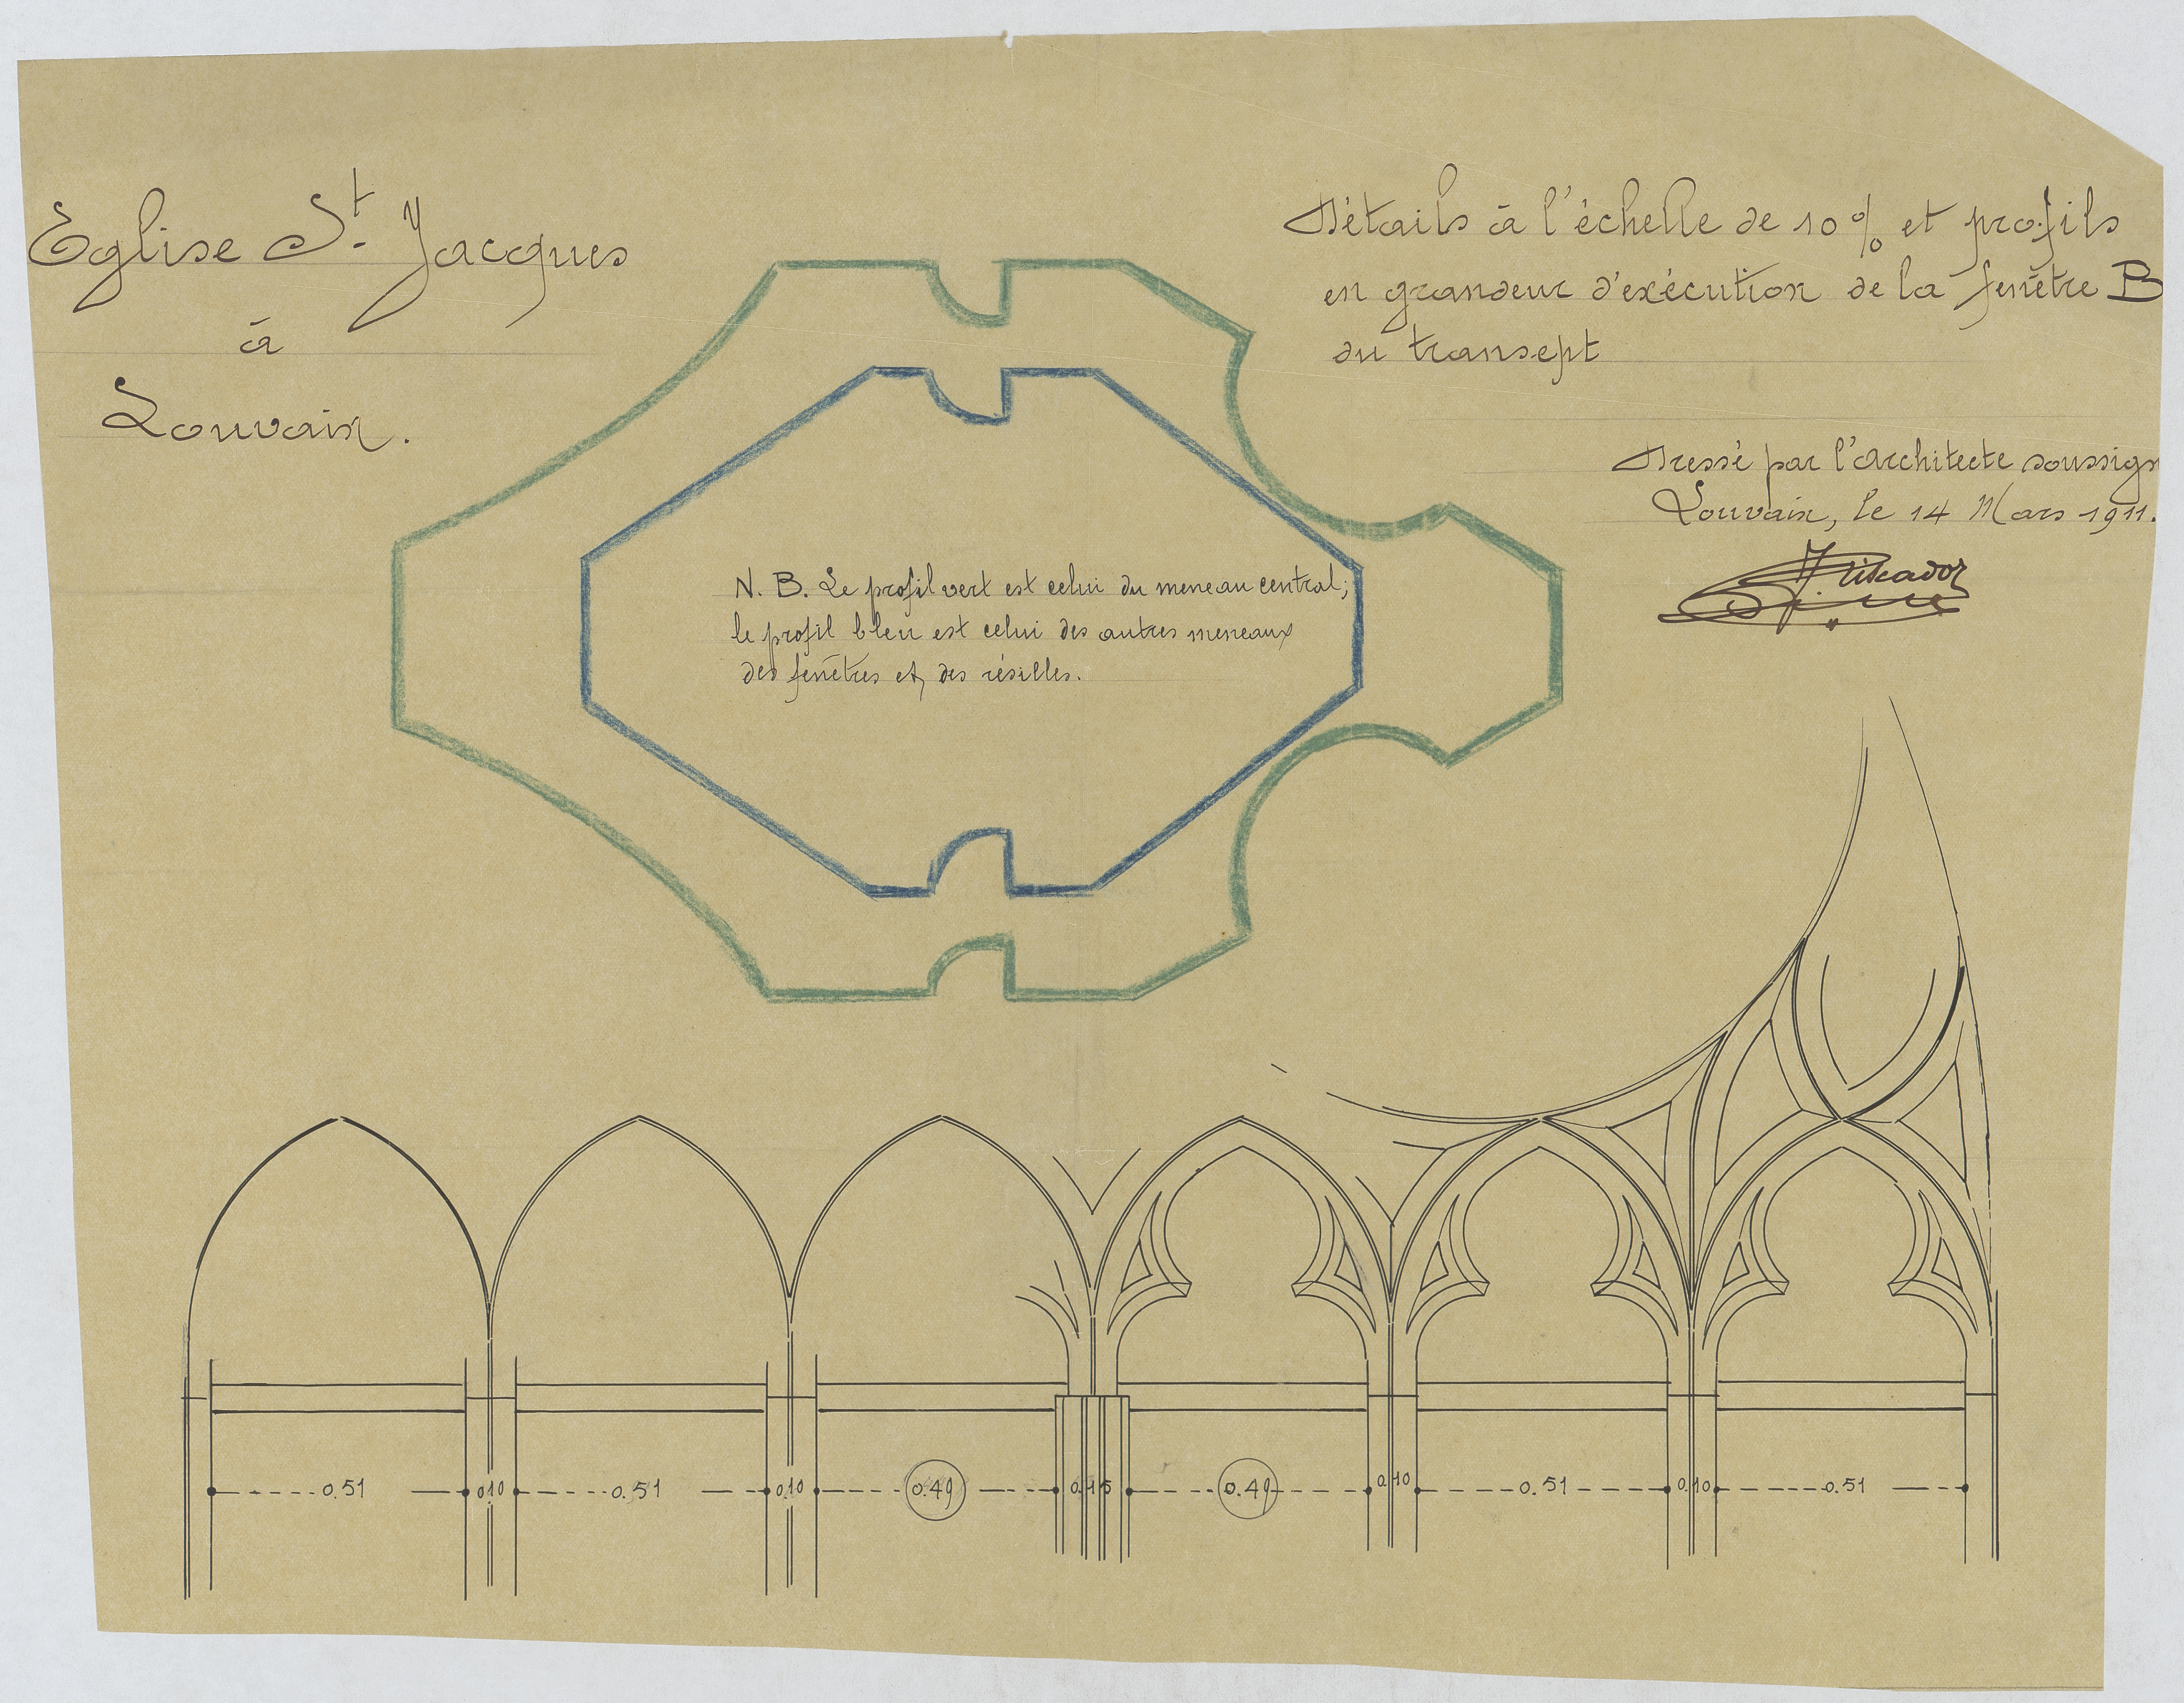 Eglise St. Jacques
à
Louvain.
Détails à l'échelle de 10% et profils
en grandeur d'exécution de la fenêtre B
du transept
Dressé par l'architecte soussign
Louvain, le 14 Mars 1911.
N. B. Le profil vert est celui du meneau central;
le profil bleu est celui des autres meneaux
des fenêtres et, des résilles.
0.51 0.10 0.51 0.10 0.49 0.15 0.49 0.10 0.51 0.10 0.51